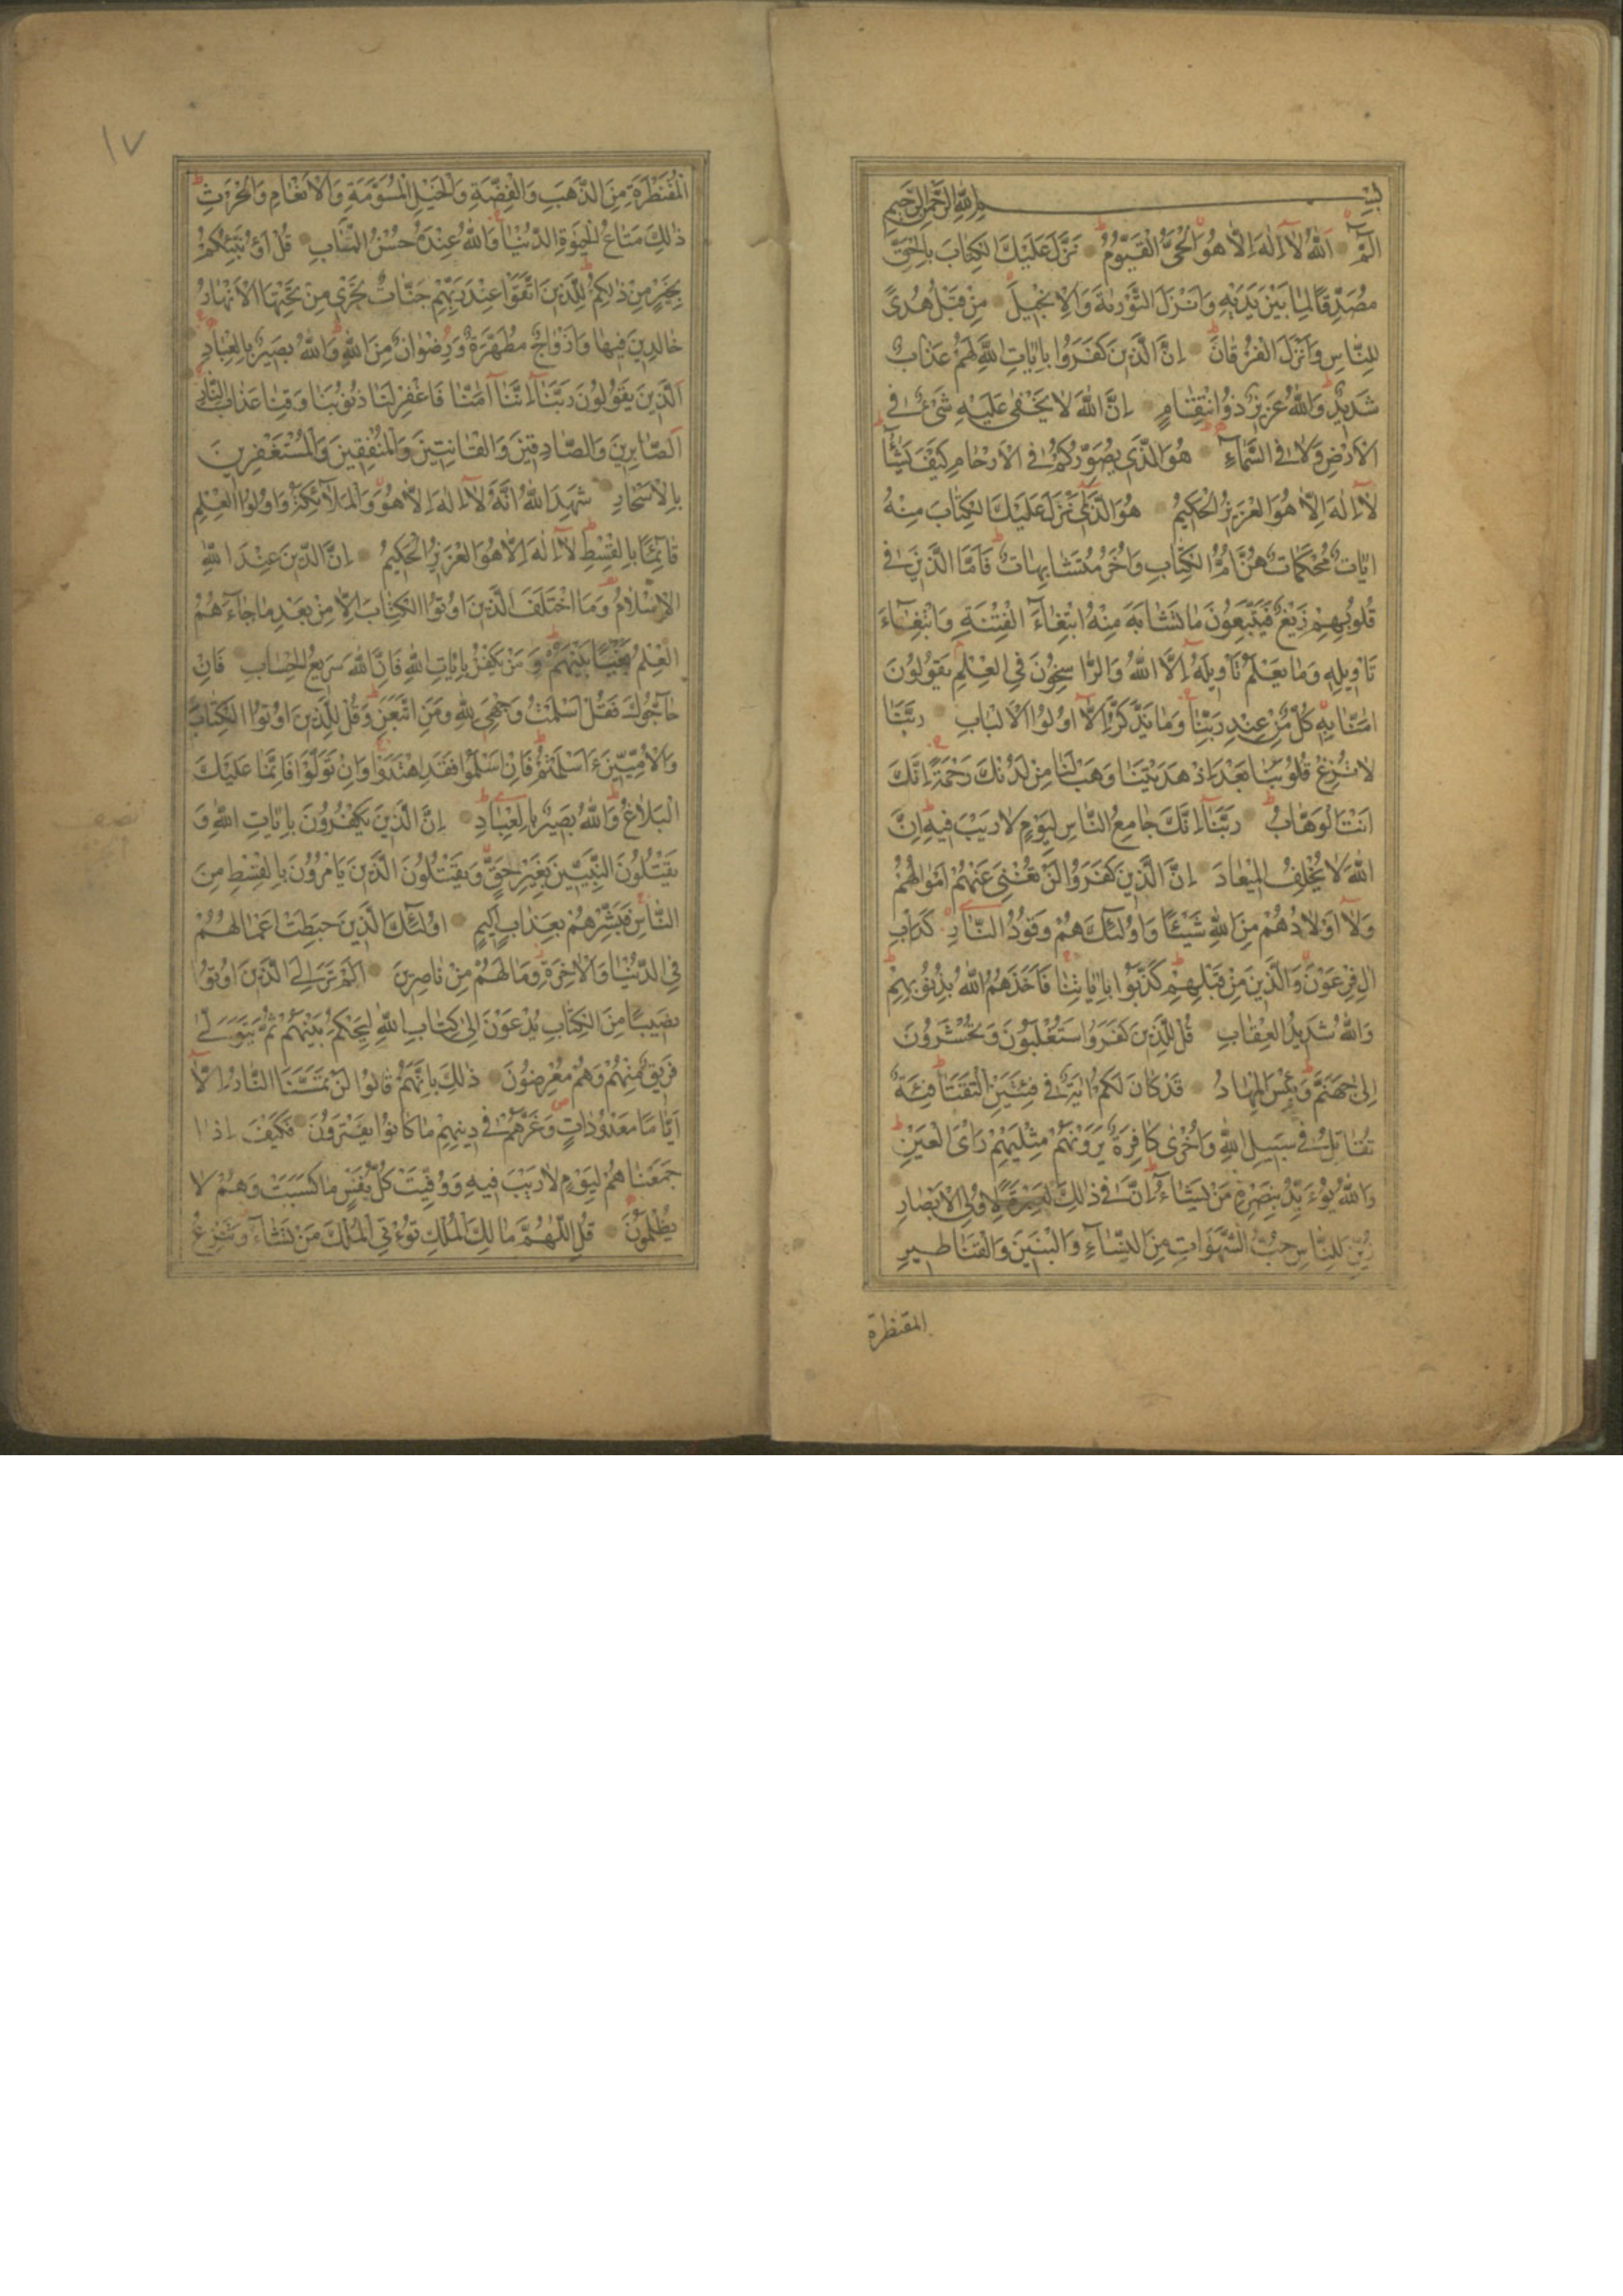 بسم الله الرحمن الرحيم
الٓمٓ اَللّٰهُ لَآ اِلٰهَ اِلَّا هُوَ الْحَىُّ الْقَيُّومُ نَزَّلَ عَلَيْكَ الْكِتَابَ بِالْحَقِّ
مُصَدِّقًا لِمَا بَيْنَ يَدَيْهِ وَاَنْزَلَ التَّوْرٰىةَ وَالْاِنْجِيلَ مِنْ قَبْلُ هُدًى
لِلنَّاسِ وَاَنْزَلَ الْفُرْقَانَ اِنَّ الَّذِينَ كَفَرُوا بِاٰيَاتِ اللّٰهِ لَهُمْ عَذَابٌ
شَدِيدٌ وَاللّٰهُ عَزِيزٌ ذُو انْتِقَامٍ اِنَّ اللّٰهَ لَا يَخْفٰى عَلَيْهِ شَىْءٌ فِى
الْاَرْضِ وَلَا فِى السَّمَآءِ هُوَ الَّذِى يُصَوِّرُكُمْ فِى الْاَرْحَامِ كَيْفَ يَشَآءُ
لَآ اِلٰهَ اِلَّا هُوَ الْعَزِيزُ الْحَكِيمُ هُوَ الَّذِىٓ نَزَّلَ عَلَيْكَ الْكِتَابَ مِنْهُ
اٰيَاتٌ مُحْكَمَاتٌ هُنَّ اُمُّ الْكِتَابِ وَاُخَرُ مُتَشَابِهَاتٌ فَاَمَّا الَّذِينَ فِى
قُلُوبِهِمْ زَيْغٌ فَيَتَّبِعُونَ مَا تَشَابَهَ مِنْهُ ابْتِغَآءَ الْفِتْنَةِ وَابْتِغَآءَ
تَاْوِيلِهِ وَمَا يَعْلَمُ تَاْوِيلَهُٓ اِلَّا اللّٰهُ وَالرَّاسِخُونَ فِى الْعِلْمِ يَقُولُونَ
اٰمَنَّا بِهِ كُلٌّ مِنْ عِنْدِ رَبِّنَا وَمَا يَذَّكَّرُ اِلَّآ اُولُوا الْاَلْبَابِ رَبَّنَا
لَا تُزِغْ قُلُوبَنَا بَعْدَ اِذْ هَدَيْتَنَا وَهَبْ لَنَا مِنْ لَدُنْكَ رَحْمَةً اِنَّكَ
اَنْتَ الْوَهَّابُ رَبَّنَآ اِنَّكَ جَامِعُ النَّاسِ لِيَوْمٍ لَا رَيْبَ فِيهِ اِنَّ
اللّٰهَ لَا يُخْلِفُ الْمِيعَادَ اِنَّ الَّذِينَ كَفَرُوا لَنْ تُغْنِىَ عَنْهُمْ اَمْوَالُهُمْ
وَلَآ اَوْلَادُهُمْ مِنَ اللّٰهِ شَيْئًا وَاُولٰٓئِكَ هُمْ وَقُودُ النَّارِ كَدَاْبِ
اٰلِ فِرْعَوْنَ وَالَّذِينَ مِنْ قَبْلِهِمْ كَذَّبُوا بِاٰيَاتِنَا فَاَخَذَهُمُ اللّٰهُ بِذُنُوبِهِمْ
وَاللّٰهُ شَدِيدُ الْعِقَابِ قُلْ لِلَّذِينَ كَفَرُوا سَتُغْلَبُونَ وَتُحْشَرُونَ
اِلٰى جَهَنَّمَ وَبِئْسَ الْمِهَادُ قَدْ كَانَ لَكُمْ اٰيَةٌ فِى فِئَتَيْنِ الْتَقَتَا فِئَةٌ
تُقَاتِلُ فِى سَبِيلِ اللّٰهِ وَاُخْرٰى كَافِرَةٌ يَرَوْنَهُمْ مِثْلَيْهِمْ رَاْىَ الْعَيْنِ
وَاللّٰهُ يُؤَيِّدُ بِنَصْرِهِ مَنْ يَشَآءُ اِنَّ فِى ذٰلِكَ لَعِبْرَةً لِاُولِى الْاَبْصَارِ
زُيِّنَ لِلنَّاسِ حُبُّ الشَّهَوَاتِ مِنَ النِّسَآءِ وَالْبَنِينَ وَالْقَنَاطِيرِ
المقنطرة
١٧
الْمُقَنْطَرَةِ مِنَ الذَّهَبِ وَالْفِضَّةِ وَالْخَيْلِ الْمُسَوَّمَةِ وَالْاَنْعَامِ وَالْحَرْثِ
ذٰلِكَ مَتَاعُ الْحَيٰوةِ الدُّنْيَا وَاللّٰهُ عِنْدَهُ حُسْنُ الْمَاٰبِ قُلْ اَؤُنَبِّئُكُمْ
بِخَيْرٍ مِنْ ذٰلِكُمْ لِلَّذِينَ اتَّقَوْا عِنْدَ رَبِّهِمْ جَنَّاتٌ تَجْرِى مِنْ تَحْتِهَا الْاَنْهَارُ
خَالِدِينَ فِيهَا وَاَزْوَاجٌ مُطَهَّرَةٌ وَرِضْوَانٌ مِنَ اللّٰهِ وَاللّٰهُ بَصِيرٌ بِالْعِبَادِ
اَلَّذِينَ يَقُولُونَ رَبَّنَآ اِنَّنَآ اٰمَنَّا فَاغْفِرْ لَنَا ذُنُوبَنَا وَقِنَا عَذَابَ النَّارِ
اَلصَّابِرِينَ وَالصَّادِقِينَ وَالْقَانِتِينَ وَالْمُنْفِقِينَ وَالْمُسْتَغْفِرِينَ
بِالْاَسْحَارِ شَهِدَ اللّٰهُ اَنَّهُ لَآ اِلٰهَ اِلَّا هُوَ وَالْمَلٰٓائِكَةُ وَاُولُوا الْعِلْمِ
قَآئِمًا بِالْقِسْطِ لَآ اِلٰهَ اِلَّا هُوَ الْعَزِيزُ الْحَكِيمُ اِنَّ الدِّينَ عِنْدَ اللّٰهِ
الْاِسْلَامُ وَمَا اخْتَلَفَ الَّذِينَ اُوتُوا الْكِتَابَ اِلَّا مِنْ بَعْدِ مَا جَآءَهُمُ
الْعِلْمُ بَغْيًا بَيْنَهُمْ وَمَنْ يَكْفُرْ بِاٰيَاتِ اللّٰهِ فَاِنَّ اللّٰهَ سَرِيعُ الْحِسَابِ فَاِنْ
حَآجُّوكَ فَقُلْ اَسْلَمْتُ وَجْهِىَ لِلّٰهِ وَمَنِ اتَّبَعَنِ وَقُلْ لِلَّذِينَ اُوتُوا الْكِتَابَ
وَالْاُمِّيِّينَ ءَاَسْلَمْتُمْ فَاِنْ اَسْلَمُوا فَقَدِ اهْتَدَوْا وَاِنْ تَوَلَّوْا فَاِنَّمَا عَلَيْكَ
الْبَلَاغُ وَاللّٰهُ بَصِيرٌ بِالْعِبَادِ اِنَّ الَّذِينَ يَكْفُرُونَ بِاٰيَاتِ اللّٰهِ وَ
يَقْتُلُونَ النَّبِيِّينَ بِغَيْرِ حَقٍّ وَيَقْتُلُونَ الَّذِينَ يَاْمُرُونَ بِالْقِسْطِ مِنَ
النَّاسِ فَبَشِّرْهُمْ بِعَذَابٍ اَلِيمٍ اُولٰٓئِكَ الَّذِينَ حَبِطَتْ اَعْمَالُهُمْ
فِى الدُّنْيَا وَالْاٰخِرَةِ وَمَا لَهُمْ مِنْ نَاصِرِينَ اَلَمْ تَرَ اِلَى الَّذِينَ اُوتُوا
نَصِيبًا مِنَ الْكِتَابِ يُدْعَوْنَ اِلٰى كِتَابِ اللّٰهِ لِيَحْكُمَ بَيْنَهُمْ ثُمَّ يَتَوَلّٰى
فَرِيقٌ مِنْهُمْ وَهُمْ مُعْرِضُونَ ذٰلِكَ بِاَنَّهُمْ قَالُوا لَنْ تَمَسَّنَا النَّارُ اِلَّآ
اَيَّامًا مَعْدُودَاتٍ وَغَرَّهُمْ فِى دِينِهِمْ مَا كَانُوا يَفْتَرُونَ فَكَيْفَ اِذَا
جَمَعْنَاهُمْ لِيَوْمٍ لَا رَيْبَ فِيهِ وَوُفِّيَتْ كُلُّ نَفْسٍ مَا كَسَبَتْ وَهُمْ لَا
يُظْلَمُونَ قُلِ اللّٰهُمَّ مَالِكَ الْمُلْكِ تُؤْتِى الْمُلْكَ مَنْ تَشَآءُ وَتَنْزِعُ